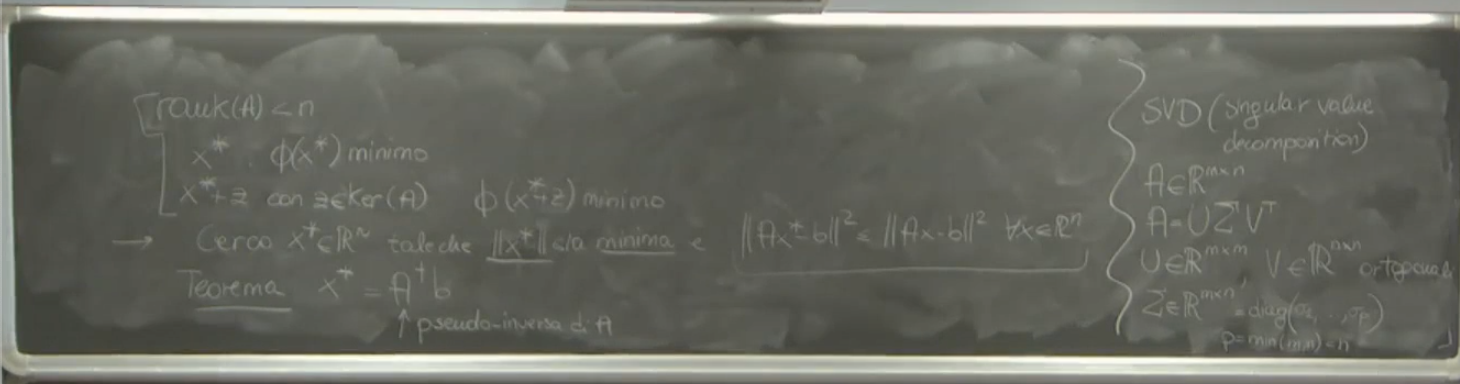 rank(A) < n
x* : φ(x*) minimo
x*+z con z∈Ker(A) φ(x*+z) minimo
→ Cerco x*∈ℝⁿ tale che ||x*|| sia minima e ||Ax*-b||² ≤ ||Ax-b||² ∀x∈ℝⁿ
Teorema x* = A†b
↑ pseudo-inversa di A
SVD (singular value
decomposition)
A∈ℝᵐˣⁿ
A=UΣVᵀ
U∈ℝᵐˣᵐ, V∈ℝⁿˣⁿ ortogonali
Σ∈ℝᵐˣⁿ = diag(σ₁,..,σₚ)
p=min(m,n)=n